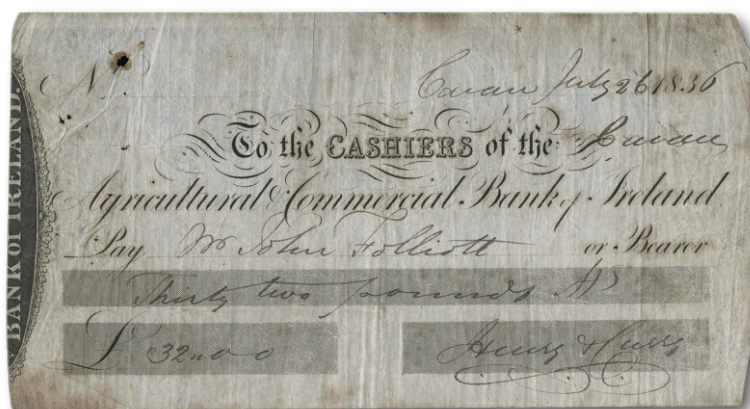 BANK OF IRELAND.
No
Cavan July 26 1836
To the CASHIERS of the Cavan
Agricultural & Commercial Bank of Ireland
Pay Mr John Folliott or Bearer
Thirty two pounds
£ 32 " 0 0
Henry